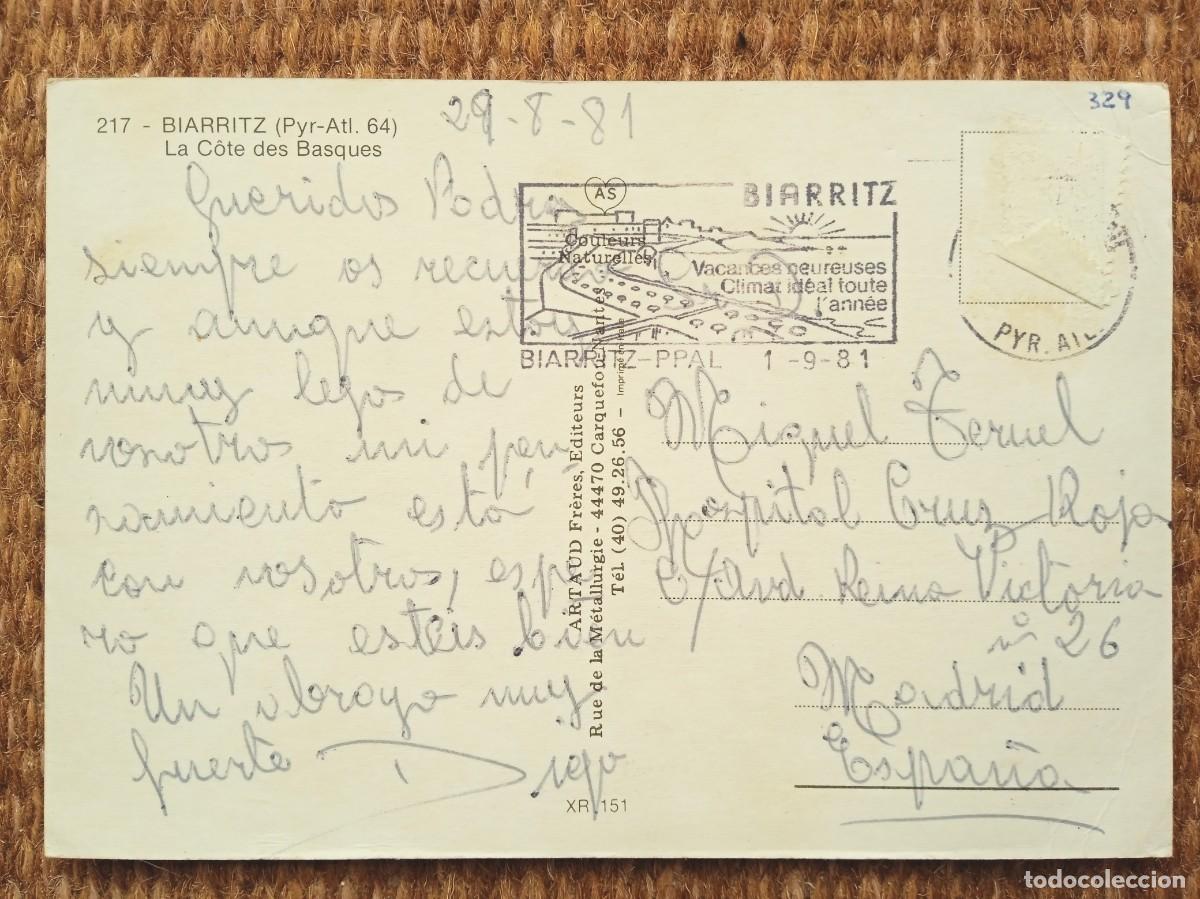 217 - BIARRITZ (Pyr-Atl. 64)
La Côte des Basques
29-8-81
329
Queridos Padres
siempre os recuerdo
y aunque estoy
muy lejos de
vosotros mi pen
samiento está
con vosotros, espe
ro que esteis bien
Un abrazo muy
fuerte Diego
AS
Couleurs
Naturelles
BIARRITZ
Vacances heureuses
Climat idéal toute
l'année
BIARRITZ-PPAL 1-9-81
PYR. ATL
ARTAUD Frères, Editeurs
Rue de la Métallurgie - 44470 Carquefou-Nantes
Tél. (40) 49.26.56 - Imprimé en Italie
XR 151
Miguel Teruel
Hospital Cruz Roja
C/ Avd Reina Victoria
nº 26
Madrid
España
todocoleccion